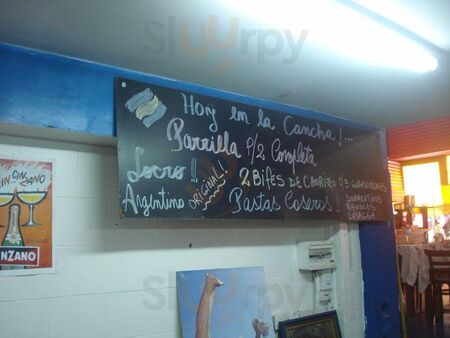 Hoy en la Cancha!...
Parrilla P/2 Completa
Locro!!
Argentino
ORIGINAL!
2 BIFES DE CHORIZO P/3 GUARNICIONES
Pastas Caseras..
SORRENTINOS
RAVIOLES
LASAGNA
CINZANO
NZANO
Sluurpy